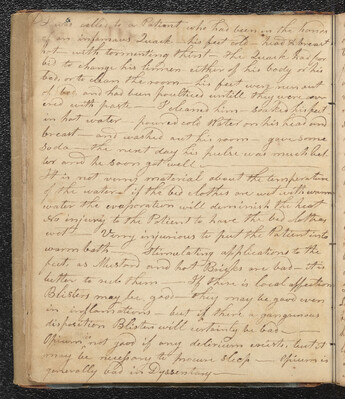 I was called to a Patient who had been in the hands
of an infamous Quack - his feet cold - head & breast
hot - with tormenting thirst - The Quack had for
bid to change his linnen either of his body or his
bed, or to clean the room - his feet were run out
of bed and had been poulticed untill they were cov
ered with paste - I cleaned him - soaked his feet
in hot water - poured cold Water on his head and
breast - and washed out his room - gave some
Soda - the next day his pulse was much bet
ter and he soon got well -
It is not very material about the temperature
of the water if the bed clothes are wet with warm
water the evaporation will deminish the heat
No injury to the Patient to have the bed clothes
wet - Very injurious to put the Patient into
warm bath - Stimulating applications to the
feet as Mustard and hot Bricks are bad - it is
better to rub them - If there is local affection
Blisters may be good - they may be good even
in inflamations - but if there a gangrenous
disposition Blisters will certainly be bad -
Opium not good if any delerium exists, but it
may be necessary to procure sleep - Opium is
generally bad in Dyssentary -